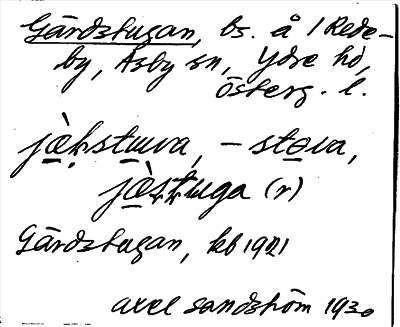 Gärdsstugan, bs. å 1 Rede-
by, Asby sn, Ydre hd,
Österg. l.
jæ̀ʂstuva, – støva,
jæ̀ʂtuga (r)
Gärdsstugan, kb 1921
Axel Sandström 1930